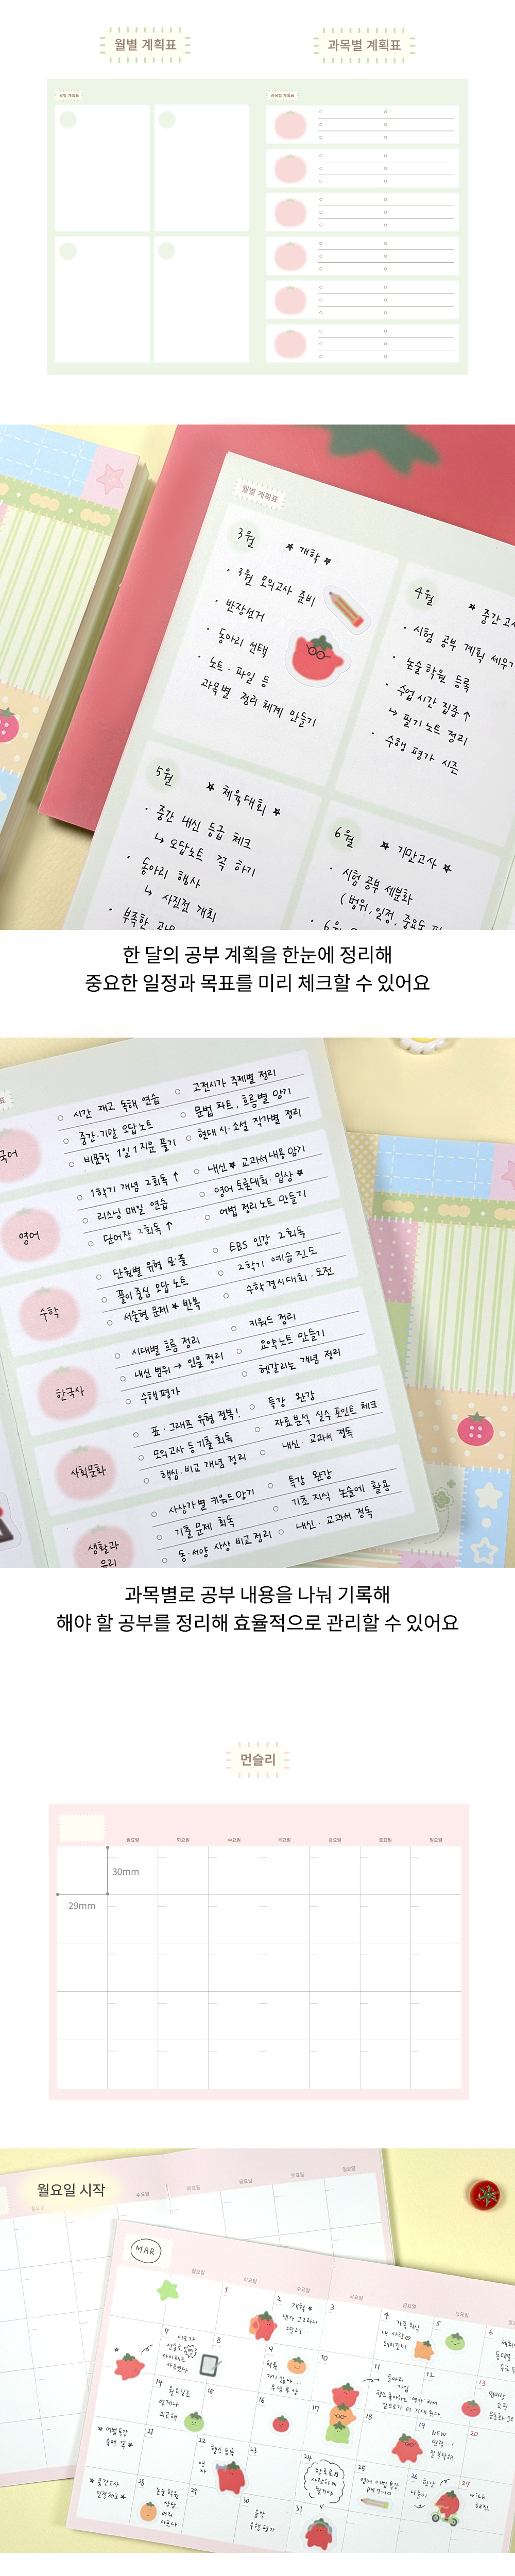 월별 계획표
과목별 계획표
월별 계획표
과목별 계획표
월별 계획표
3월
★ 개학 ★
• 3월 모의고사 준비
• 반장선거
• 동아리 선택
• 노트·파일 등
과목별 정리 체계 만들기
4월
★ 중간고사
• 시험 공부 계획 세우기
• 논술학원 등록
• 수업시간 집중 ↑
↳ 필기노트 정리
• 수행평가 시즌
5월
★ 체육대회 ★
• 중간 내신 등급 체크
↳ 오답노트 꼭 하기
• 동아리 행사
↳ 사진전 개최
• 부족한
6월
★ 기말고사 ★
• 시험 공부 세분화
(범위, 일정, 중요도
한 달의 공부 계획을 한눈에 정리해
중요한 일정과 목표를 미리 체크할 수 있어요
국어
시간 재고 독해 연습
고전시가 주제별 정리
중간·기말 오답노트
문법 파트, 흐름별 암기
비문학 1일 1지문 풀기
현대시·소설 작가별 정리
영어
1학기 개념 2회독 ↑
내신★ 교과서 내용 암기
리스닝 매일 연습
영어 토론대회·입상★
단어장 2회독 ↑
어법 정리노트 만들기
수학
단원별 유형
EBS 인강 2회독
풀이 중심 오답노트
2학기 예습 진도
서술형 문제 ★ 반복
수학경시대회·도전
한국사
시대별 흐름 정리
키워드 정리
내신 범위 → 인물 정리
요약노트 만들기
수행평가
헷갈리는 개념 정리
사회문화
표·그래프 유형 정복!
특강 완강
모의고사 등 기출 회독
자료분석 실수 포인트 체크
핵심·비교 개념 정리
내신·교과서 정독
생활과
윤리
사상가별 키워드 암기
특강 완강
기출 문제 회독
기초 지식 논술에 활용
동·서양 사상 비교 정리
내신·교과서 정독
과목별로 공부 내용을 나눠 기록해
해야 할 공부를 정리해 효율적으로 관리할 수 있어요
먼슬리
월요일 화요일 수요일 목요일 금요일 토요일 일요일
30mm
29mm
월요일 시작
수요일 목요일 금요일 토요일 일요일
MAR
월요일 화요일 수요일 목요일 금요일 토요일
1
2 개학★
3
4 가족 외식
5
6
7
8
9 학원
11 동아리
가입
12
13
14
15
16
17
18
19 NEW
20
21
22
23
24
25
26
27
28 논술학원
상담
29
30 음악
수행평가
31